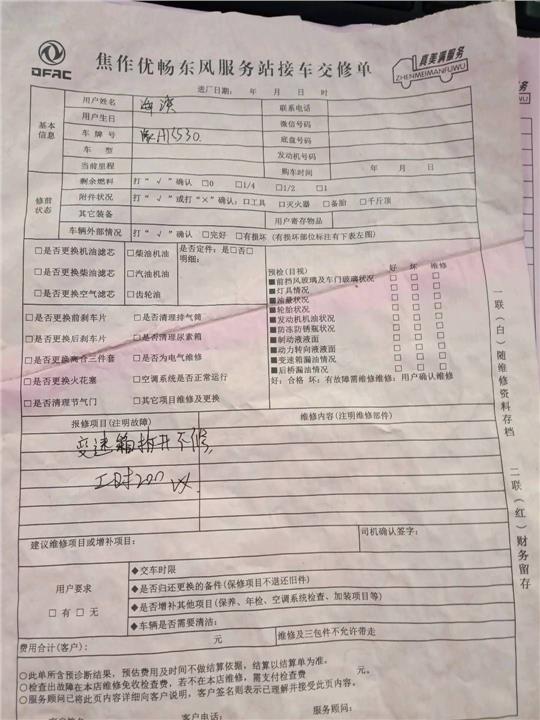 DFAC
焦作优畅东风服务站接车交修单
真美满服务
ZHENMEIMANFUWU
进厂日期: 年 月 日 时
基本信息
用户姓名 海滨 联系电话
用户生日 微信号码
车牌号 底盘号码
车型 发动机号码
当前里程 购车时间 年 月 日
修前状态
剩余燃料 打“√”确认 □0 □1/4 □1/2 □1
附件状况 打“√”或打“×”确认: □工具 □灭火器 □备胎 □千斤顶
其它装备 用户寄存物品
车辆外部情况 打“√”确认 □完好 □有损坏 (有损坏部位标注有下表左图)
□是否更换机油滤芯 □柴油机油 是否定件: 是□否□
明细:
□是否更换柴油滤芯 □汽油机油
□是否更换空气滤芯 □齿轮油
□是否更换前刹车片 □是否清理排气筒
□是否更换后刹车片 □是否清理尿素箱
□是否更换离合三件套 □是否为电气维修
□是否更换火花塞 □空调系统是否正常运行
□是否清理节气门 □其它项目维修及更换
预检(目视) 好 坏 维修
■前挡风玻璃及车门玻璃状况 □ □ □
■灯具情况 □ □ □
■油量状况 □ □ □
■轮胎状况 □ □ □
■发动机机油状况 □ □ □
■防冻防锈瓶状况 □ □ □
■制动液液面 □ □ □
■动力转向液液面 □ □ □
■变速箱漏油情况 □ □ □
■后桥漏油情况 □ □ □
好: 合格 坏: 有故障需维修维修: 用户确认维修
报修项目(注明故障) 维修内容(注明维修部件)
变速箱打开不修
工时200
建议维修项目或增补项目: 司机确认签字:
用户要求
□有 □无
◆交车时限
◆是否归还更换的备件(保修项目不退还旧件)
◆是否增补其他项目(保养、年检、空调系统检查、加装项目等)
◆车辆是否需要清洁:
费用合计(客户): 元 维修及三包件不允许带走
○此单所含预诊断结果, 预估费用及时间不做结算依据, 结算以结算单为准。
○检查出故障在本店维修免收检查费, 若不在本店维修, 需支付检查费 元。
○服务顾问已将此页内容详细向客户说明, 客户签名则表示已理解并接受此页内容。
客户电话: 服务顾问:
一联(白)随维修资料存档 二联(红)财务留存